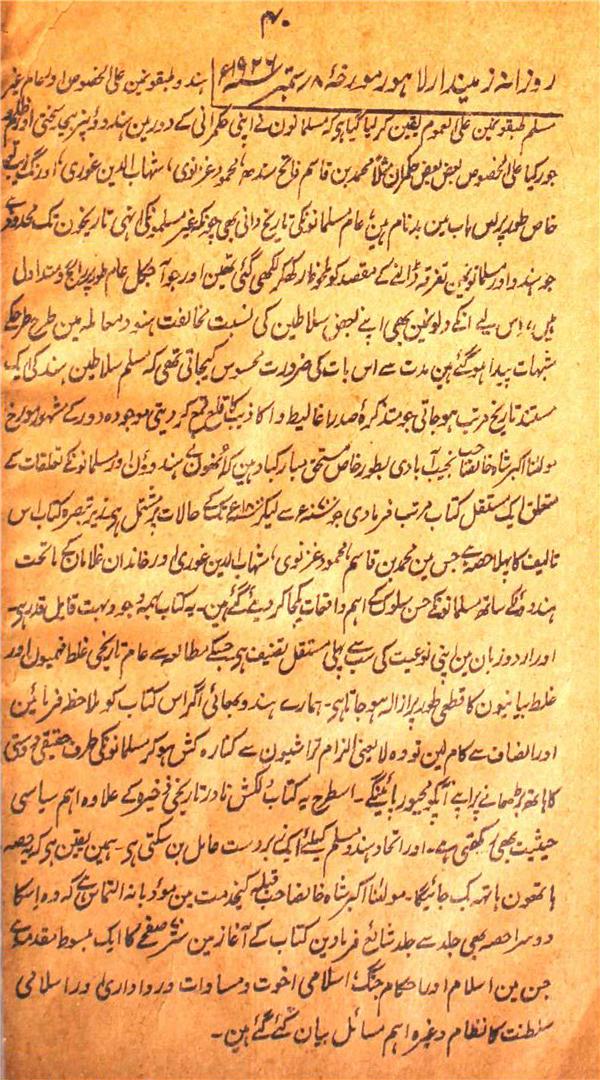 ۴۰
روزانہ زمیندار لاہور مورخۂ ۸ ستمبر ۱۹۲۶ء
ہندو طبقونمین علی الخصوص اور عام غیر
مسلم طبقونمین علی العموم یقین کر لیا گیا ہی کہ مسلمانون نے اپنی حکمرانی کے دور مین ہندوؤنپر بیجا سختی اور ظلم و
جور کیا علی الخصوص بعض بعض حکمران مثلاً محمد بن قاسم فاتح سندھ، محمود غزنوی، شہاب الدین غوری، اورنگ زیب تو
خاص طور پر اس باب مین بدنام ہین، عام مسلمانونکی تاریخ دانی بھی چونکہ غیر مسلمونکی انہی تاریخون تک محدود ہے
جو ہندو اور مسلمانونمین تفرقہ ڈالنے کے مقصد کو ملحوظ رکھ کر لکھی گئی تھین اور جو آجکل عام طور پر رائج و متداول
ہین، اس لیے انکے دلونمین بھی اپنے بعض سلاطین کی نسبت مخالفت ہنود معاملہ مین طرح طرح کے
شبہات پیدا ہو گئے ہین مدت سے اس بات کی ضرورت محسوس کیجاتی تھی کہ مسلم سلاطین ہند کی ایک
مستند تاریخ مرتب ہو جاتی جو متذکرۂ صدر اغالیط و اکاذیب کا قلع قمع کر دیتی موجودہ دور کے مشہور مورخ
مولٰنا اکبر شاہ خانصاحب نجیب آبادی بطور خاص مستحق مبارکباد ہین کہ اُنھون نے ہندوؤن اور مسلمانونکے تعلقات کے
متعلق ایک مستقل کتاب مرتب فرما دی جو ۷۰۰ء سے لیکر ۱۸۰۰ء تک کے حالات پر مشتمل ہی زیر تبصرہ کتاب اس
تالیف کا پہلا حصہ ہے جس مین محمد بن قاسم، محمود غزنوی، شہاب الدین غوری اور خاندان غلامان کے ماتحت
ہندوؤنکے ساتھ مسلمانونکے حسن سلوک کے اہم واقعات یکجا کر دیئے گئے ہین۔ یہ کتاب بہمہ وجوہ بہت قابل قدر ہی۔
اور اردو زبان مین اپنی نوعیت کی سب سے پہلی مستقل تصنیف ہی جسکے مطالعہ سے عام تاریخی غلط فہمیون اور
غلط بیانیون کا قطعی طور پر ازالہ ہو جاتا ہی۔ ہمارے ہندو بھائی اگر اس کتاب کو ملاحظہ فرمائین
اور انصاف سے کام لین تو وہ لایعنی الزام تراشیون سے کنارہ کش ہو کر مسلمانونکی طرف حقیقی دوستی
کا ہاتھ بڑھانے پر اپنے آپکو مجبور پائینگے۔ اسطرح یہ کتاب دلکش نادر تاریخی ذخیرہ کے علاوہ اہم سیاسی
حیثیت بھی رکھتی ہے۔ اور اتحاد ہندو مسلم کیلئے ایک زبردست عامل بن سکتی ہی۔ ہمین یقین ہی کہ یہ حصہ
ہاتھون ہاتھ بک جائیگا۔ مولٰنا اکبر شاہ خانصاحب قبلہ کیخدمت مین مؤدبانہ التماس ہے کہ وہ اسکا
دوسرا حصہ بھی جلد سے جلد شائع فرما دین کتاب کے آغاز مین ستر صفحے کا ایک مبسوط مقدمہ ہے
جس مین اسلام اور احکام جنگ، اسلامی اخوت و مساوات و رواداری اور اسلامی
سلطنت کا نظام وغیرہ اہم مسائل بیان کئے گئے ہین۔